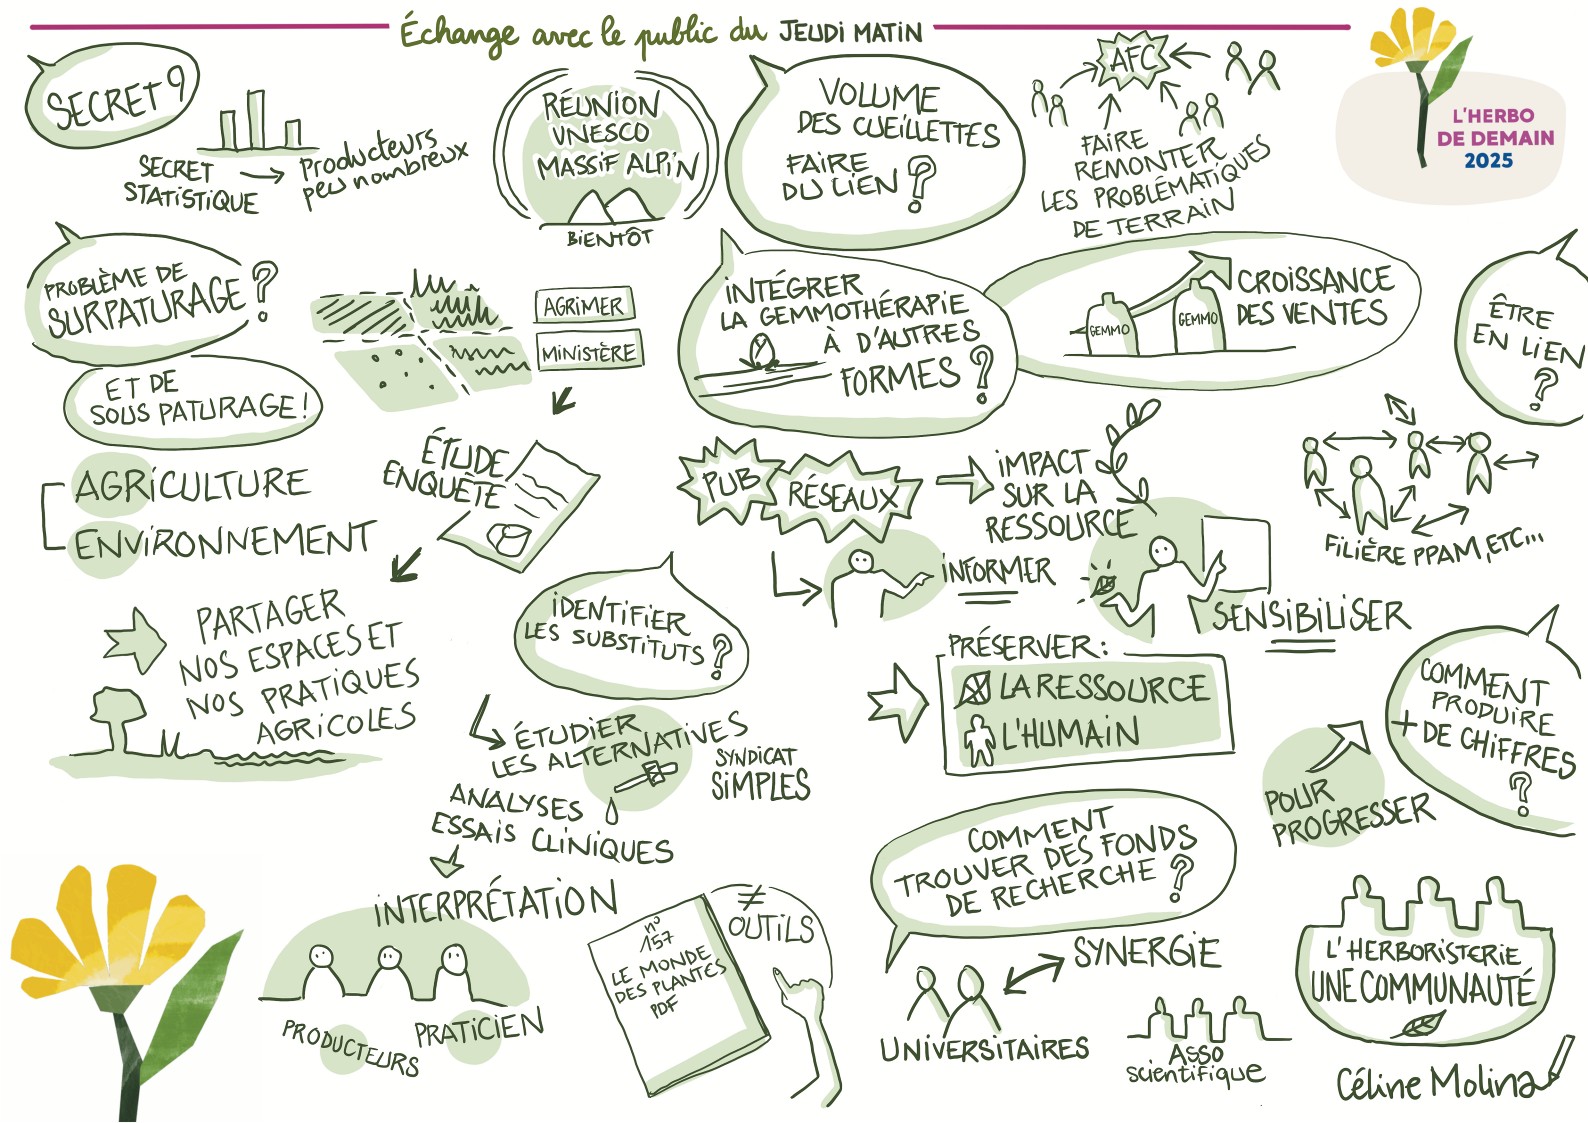 Échange avec le public du JEUDI MATIN
SECRET ?
SECRET
STATISTIQUE
Producteurs
peu nombreux
RÉUNION
UNESCO
MASSIF ALPIN
BIENTÔT
VOLUME
DES CUEILLETTES
FAIRE
DU LIEN ?
AFC
FAIRE
REMONTER
LES PROBLÉMATIQUES
DE TERRAIN
L'HERBO
DE DEMAIN
2025
PROBLÈME DE
SURPATURAGE ?
ET DE
SOUS PATURAGE !
AGRICULTURE
ENVIRONNEMENT
AGRIMER
MINISTÈRE
ÉTUDE
ENQUÊTE
PARTAGER
NOS ESPACES ET
NOS PRATIQUES
AGRICOLES
INTÉGRER
LA GEMMOTHÉRAPIE
À D'AUTRES
FORMES ?
GEMMO
GEMMO
CROISSANCE
DES VENTES
ÊTRE
EN LIEN
?
PUB
RÉSEAUX
IMPACT
SUR LA
RESSOURCE
INFORMER
SENSIBILISER
FILIÈRE PPAM, ETC...
IDENTIFIER
LES SUBSTITUTS ?
ÉTUDIER
LES ALTERNATIVES
SYNDICAT
SIMPLES
ANALYSES
ESSAIS CLINIQUES
INTERPRÉTATION
PRODUCTEURS
PRATICIEN
PRÉSERVER :
LA RESSOURCE
L'HUMAIN
COMMENT
PRODUIRE
+ DE CHIFFRES
?
POUR
PROGRESSER
≠
OUTILS
n°
157
LE MONDE
DES PLANTES
PDF
COMMENT
TROUVER DES FONDS
DE RECHERCHE ?
SYNERGIE
UNIVERSITAIRES
ASSO
scientifique
L'HERBORISTERIE
UNE COMMUNAUTÉ
Céline Molina